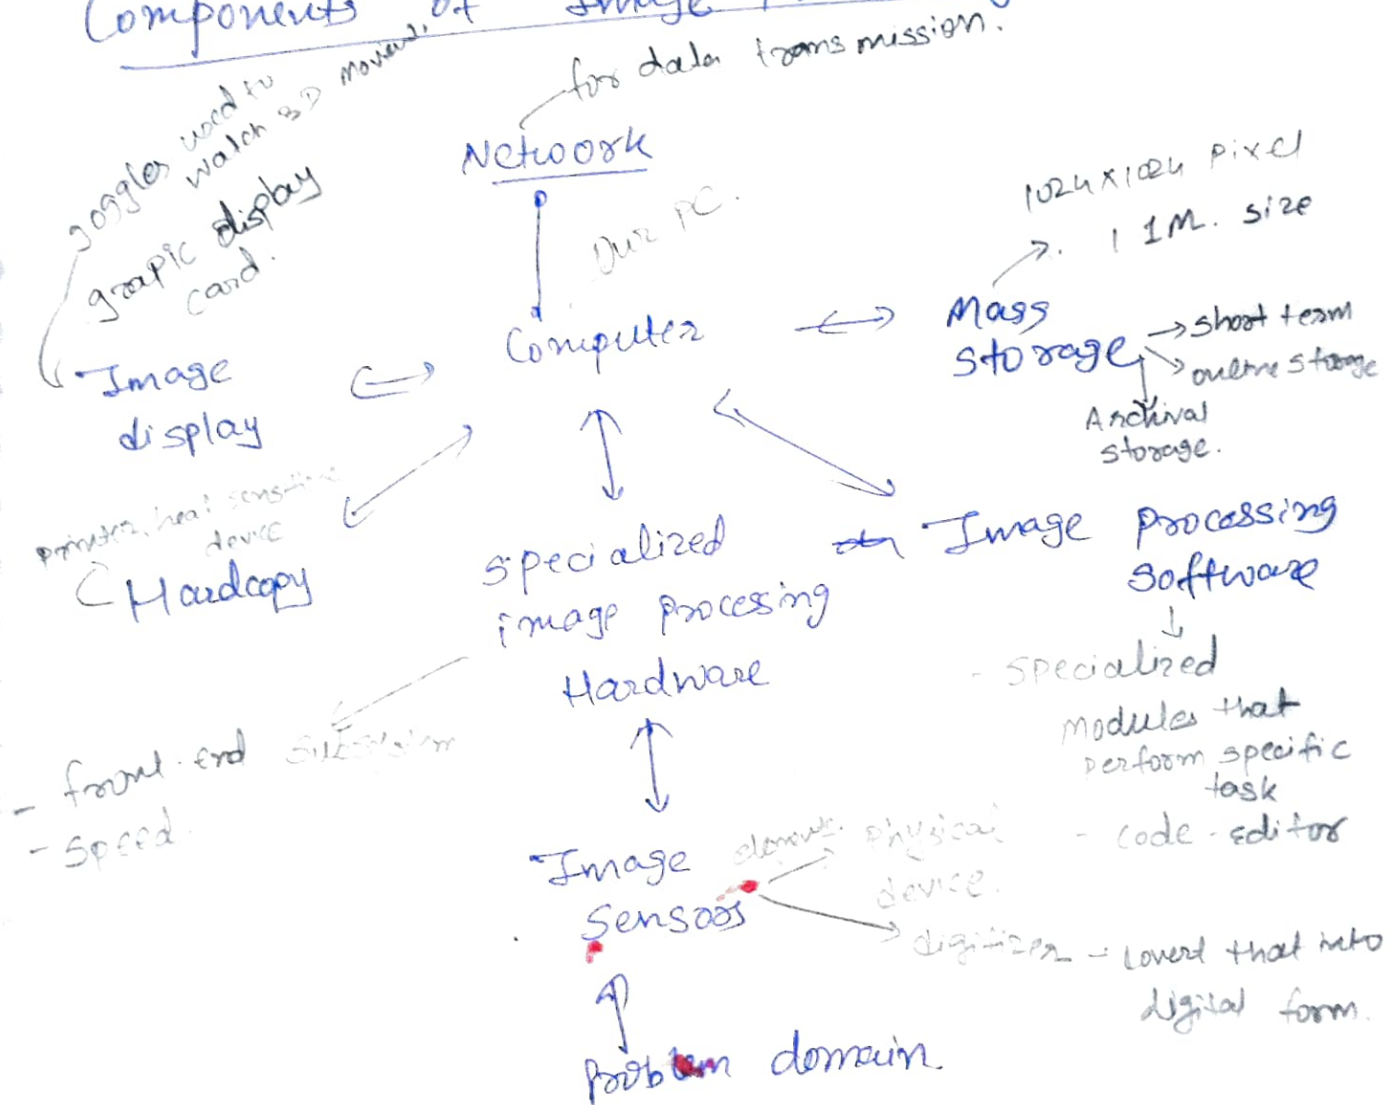 Components of Image
for data transmission.
goggles used to
watch 3D movies.
Netwoork
1024x1024 Pixel
1 1M. size
grapic display
card.
Our PC.
Computer
Mass
storage
short term
Archival
storage.
Image
display
printer, heat sensitive
device
Hardcopy
specialized
image procesing
Hardware
Image Processing
Software
- Specialized
Modules that
perform specific
task
- code-editor
- front-end subsystem
- Speed.
Image
Sensors
Physical
device.
digitizer - Covert that into
digital form.
Problem domain.